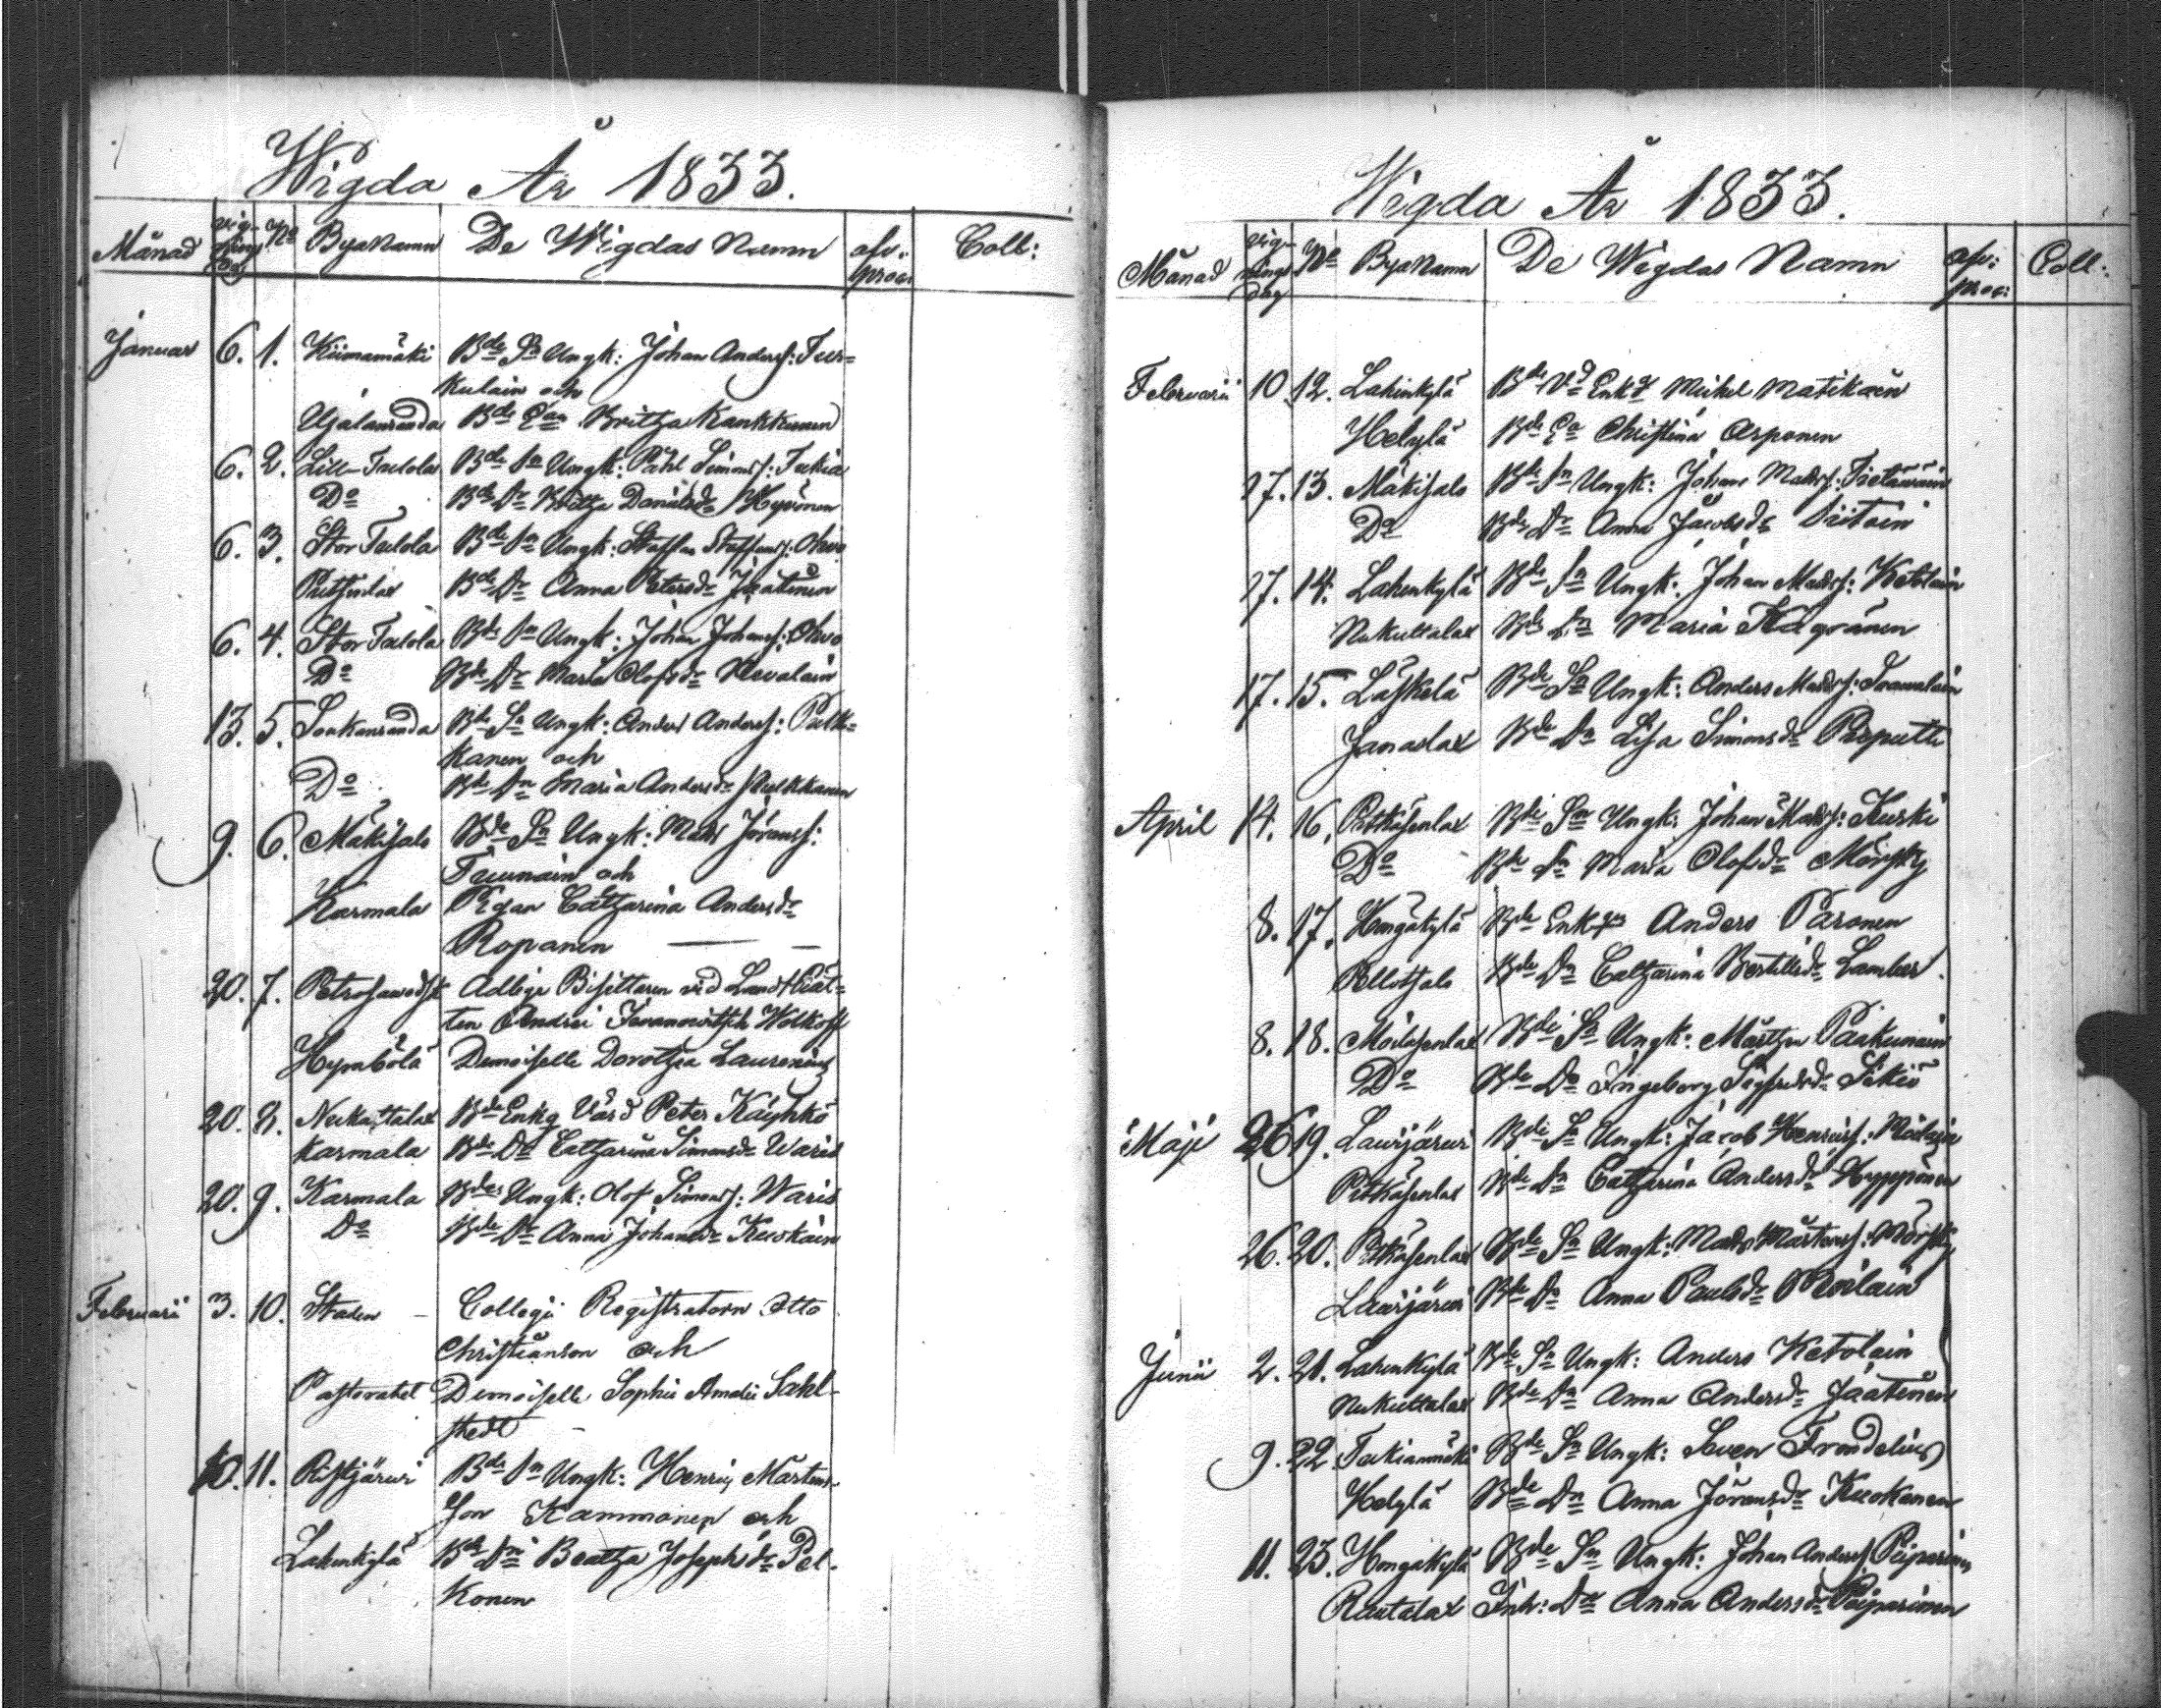 Wigda År 1833.
Månad Vig-nings Dag No Byanamn De Wigdas Namn afv: proc: Coll:
Januar 6. 1. Kiimamäki Bde Sn Ungk: Johan Anderss: Tur=
kulain och
Ujalanranda Bde Dan Britha Kankkunen
6. 2. Lill-Tulola Bde Sn Ungk: Påhl Simonss: Tukia
Do Bde Dr Britha Danielsdr Hyvönen
6. 3. Stor Tulola Bde Sn Ungk: Staffan Staffanss: Ohvo
Bde Dr Anna Petersdr Jäätinen
6. 4. Stor Tulola Bde Sn Ungk: Johan Johanss: Ohvo
Do Bde Dr Maria Olofsdr
13. 5. Sonkanranda Bde Sn Ungk: Anders Anderss: Pulk=
kanen och
Do Bde Dn Maria Andersdr Pulkkanen
9. 6. Mäkisalo Bde Sn Ungk: Mats Jöranss:
och
Karmala Pigan Catharina Andersdr
Ropanen
20. 7. Petrosawodsk Adlige Bisittaren vid Landträt=
ten Andrei Iwanowitsch Wolkoff
Hympölä Demoiselle Dorothea Laurenius
20. 8. Nukuttalax Bde Enkg Vård Peter Käyhkö
Karmala Bde Dr Catharina Simonsdr Waris
20. 9. Karmala Bde Ungk: Olof Simonss: Waris
Do Bde Dr Anna Johansdr Kuokain
Februarii 3. 10. Staden Collegii Registratorn Otto
Christianson och
Pastoratet Demoiselle Sophie Amalie Sahl-
stedt
10. 11. Ristjärwi Bde Sn Ungk: Henric Mårtens-
son Kammonen och
Lahenkylä Bde Dn Beatha Josephsdr Pel-
konen
Wigda År 1833.
Månad Vig-nings Dag No Byanamn De Wigdas Namn afv: proc: Coll:
Februarii 10 12. Lahinkylä Bde Vd Enkg Michel Matikain
Helylä Bde Da Christina Asponen
17. 13. Mäkisalo Bde Sn Ungk: Johan Matss: Tietäväin
Do Bde Dr Anna Jacobsdr
17. 14. Lahenkylä Bde Sn Ungk: Johan Matss: Ketolain
Nukuttalax Bde Dn Maria
17. 15. Läskelä Bde Sn Ungk: Anders Matss:
Janaslax Bde Dn Lisa Simonsdr
April 14. 16. Pitkäsenlax Bde Sn Ungk: Johan Matss: Kurki
Do Bde Dn Maria Olofsdr Mörsky
8. 17. Hongakylä Bde Enkg Anders Paronen
Pellotsalo Bde Dn Catharina Bertilsdr Lambar
8. 18. Möiläsenlax Bde Sn Ungk: Mårthen Paakunain
Do Bde Dn Ingeborg Sigfredsdr Sikiö
Maji 26 19. Lawijärwi Bde Sn Ungk: Jacob Henricss: Möilain
Pitkäsenlax Bde Dn Catharina Andersdr Hyppönen
26. 20. Pitkäsenlax Bde Sn Ungk: Mats Mårtenss: Mörsky
Lawijärwi Bde Dr Anna Paulsdr Möilain
Junii 2. 21. Lahenkylä Bde Sn Ungk: Anders Ketolain
Nukuttalax Bde Dn Anna Andersdr Jäätinen
9. 22. Tukianmäki Bde Sn Ungk: Swen Frondelius
Helylä Bde Dn Anna Jöransdr Kuokanen
11. 23. Hongakylä Bde Sn Ungk: Johan Anderss: Piiparinen
Rautalax Inh: Dr Anna Andersdr Piiparinen